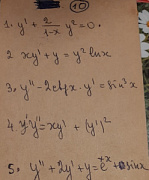 10
1. y' + 2/(1-x) y² = 0.
2 xy' + y = y² lnx
3. y'' - 2ctgx · y' = sin³x
4. y'y'' = xy' + (y')²
5. y'' + 2y' + y =